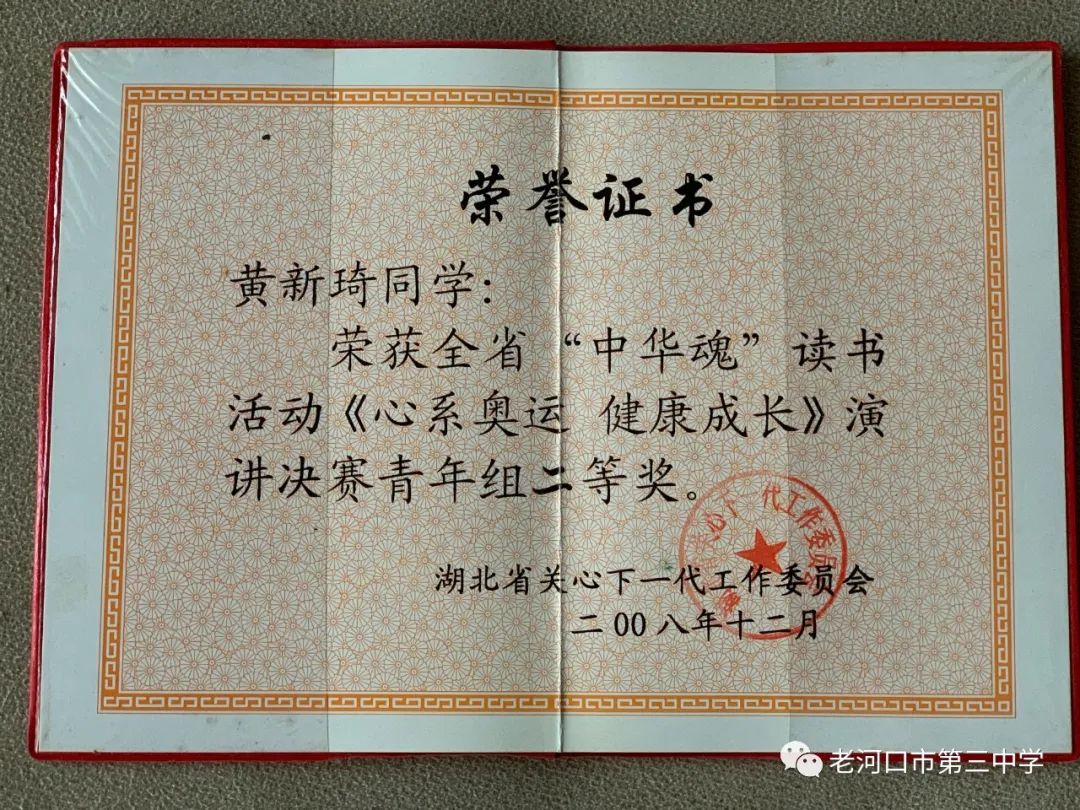 荣誉证书
黄新琦同学：
荣获全省“中华魂”读书
活动《心系奥运 健康成长》演
讲决赛青年组二等奖。
湖北省关心下一代工作委员会
二00八年十二月
关心下一代工作委员会
老河口市第三中学